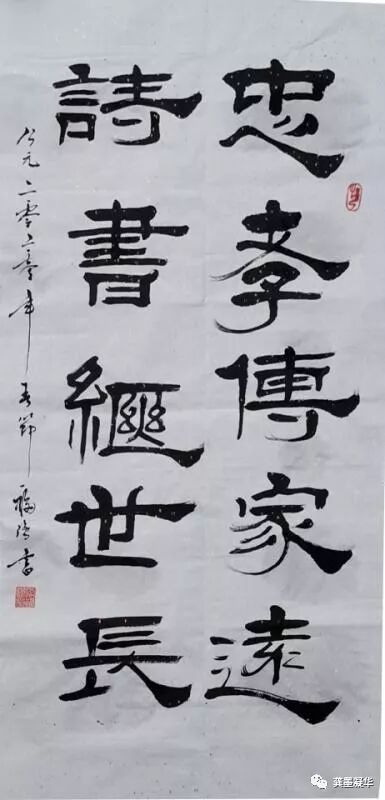 忠孝傳家遠
詩書繼世長
公元二零二年春節書
龚墨凝华